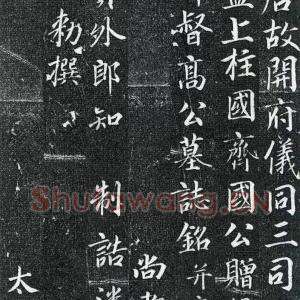 唐故開府儀同三司
監上柱國齊國公贈
都督高公墓誌銘并
尚
外郎知 制誥潘
勑撰
太
Shufawang.CN